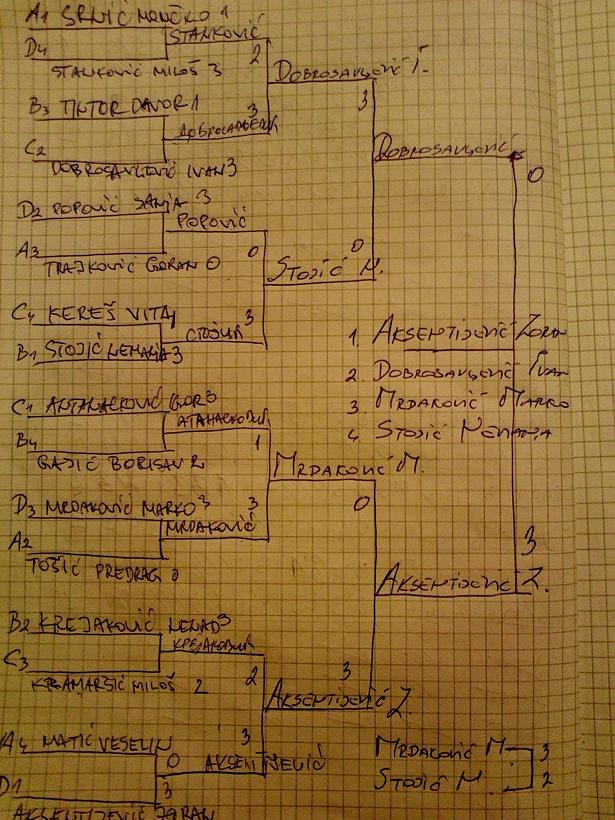 A1 SRNIĆ MOMČILO 1
STANKOVIĆ
D4
2
STANKOVIĆ MILOŠ 3
DOBROSAVLJEVIĆ I.
B3 TINTOR DAVOR 1
3
3
C2
DOBROSAVLJEVIĆ IVAN 3
DOBROSAVLJEVIĆ
0
D2 POPOVIĆ SANJA 3
POPOVIĆ
A3
0
TRAJKOVIĆ GORAN 0
0
STOJIĆ N.
C4 KEREŠ VITA 1
3
B1 STOJIĆ NEMANJA 3
1. AKSENTIJEVIĆ ZORAN
2. DOBROSAVLJEVIĆ IVAN
3. MRDAKOVIĆ MARKO
4. STOJIĆ NEMANJA
C1 ANTANACKOVIĆ IGOR 3
B4
1
GAJIĆ BORISAV 2
MRDAKOVIĆ M.
0
D3 MRDAKOVIĆ MARKO 3
3
MRDAKOVIĆ
A2
TOŠIĆ PREDRAG 0
3
AKSENTIJEVIĆ Z.
B2 KREJAKOVIĆ NENAD 3
C3
2
3
KRAMARŠIĆ MILOŠ 2
AKSENTIJEVIĆ Z.
A4 MATIĆ VESELIN
0
3
AKSENTIJEVIĆ
D1
3
AKSENTIJEVIĆ ZORAN
MRDAKOVIĆ M. 3
STOJIĆ N. 2